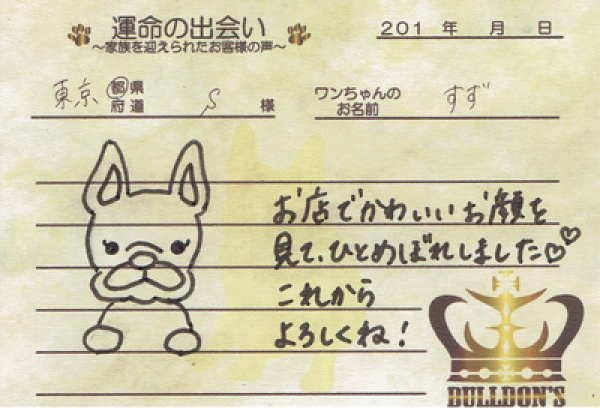 運命の出会い
～家族を迎えられたお客様の声～
201 年 月 日
東京 都県府道 S 様
ワンちゃんのお名前 すず
お店でかわいいお顔を
見て、ひとめぼれしました♡♡
これから
よろしくね！
BULLDON'S